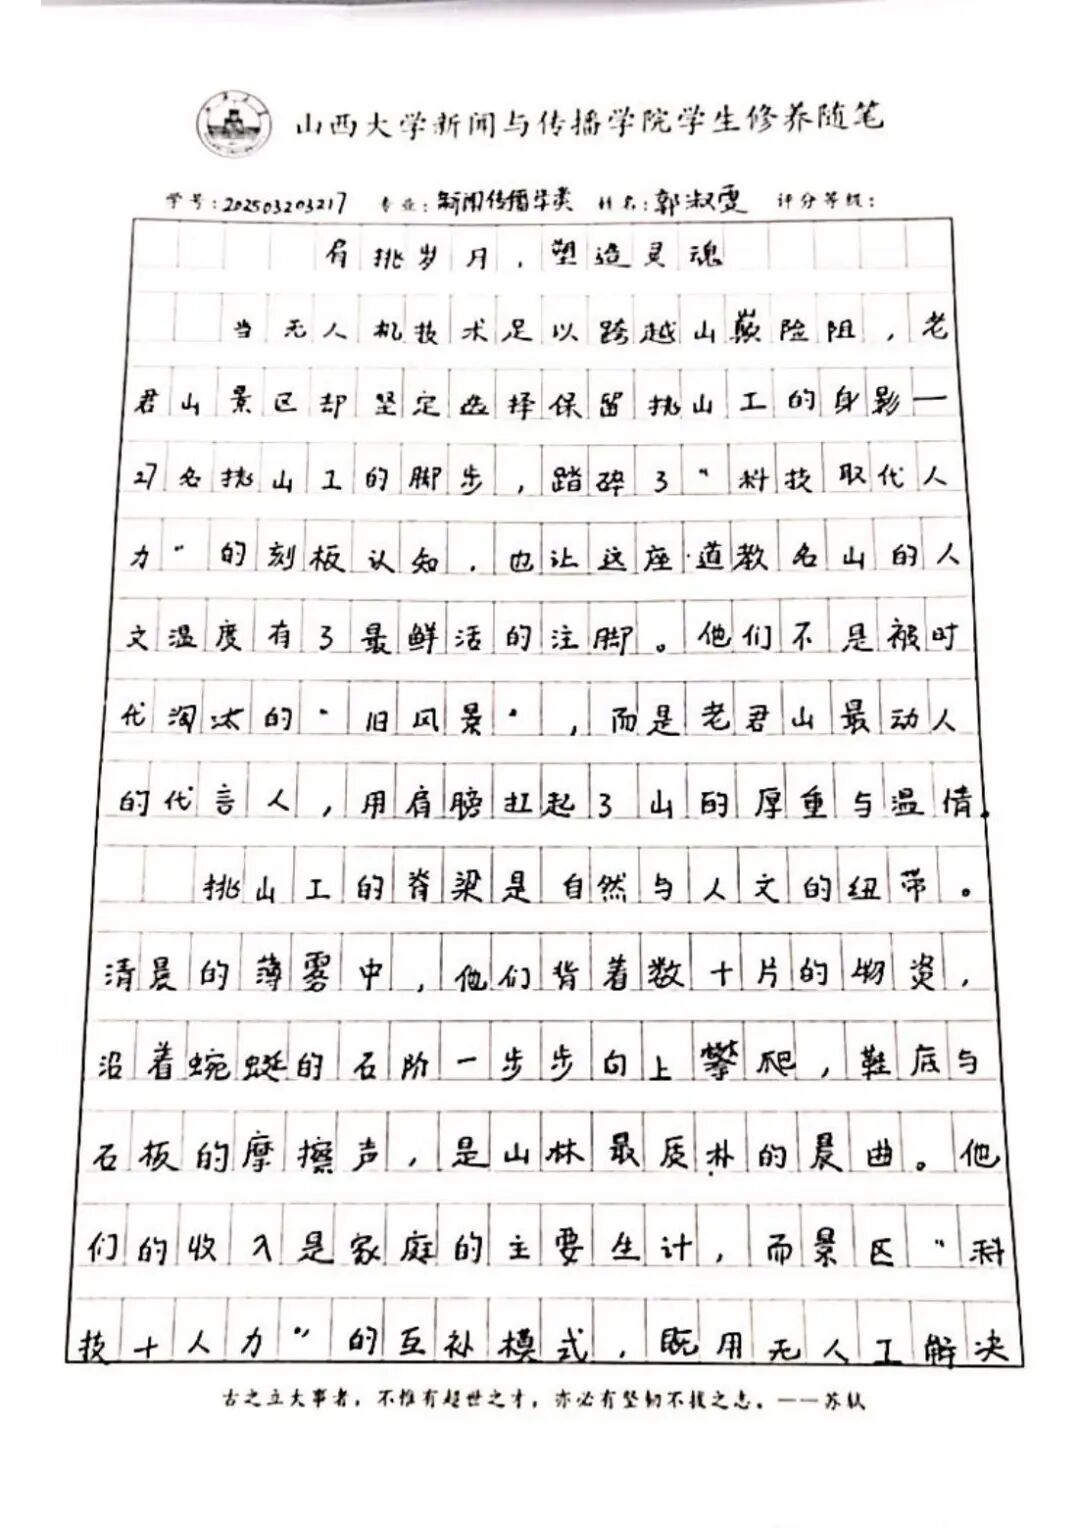 山西大学新闻与传播学院学生修养随笔
学号:202503203217 专业:新闻传播学类 姓名:郭淑雯 评分等级:
肩挑岁月，塑造灵魂
当无人机技术足以跨越山巅险阻，老
君山景区却坚定选择保留挑山工的身影—
27名挑山工的脚步，踏碎了“科技取代人
力”的刻板认知，也让这座道教名山的人
文温度有了最鲜活的注脚。他们不是被时
代淘汰的“旧风景”，而是老君山最动人
的代言人，用肩膀扛起了山的厚重与温情。
挑山工的脊梁是自然与人文的纽带。
清晨的薄雾中，他们背着数十斤的物资，
沿着蜿蜒的石阶一步步向上攀爬，鞋底与
石板的摩擦声，是山林最质朴的晨曲。他
们的收入是家庭的主要生计，而景区“科
技+人力”的互补模式，既用无人工解决
古之立大事者，不惟有超世之才，亦必有坚韧不拔之志。——苏轼